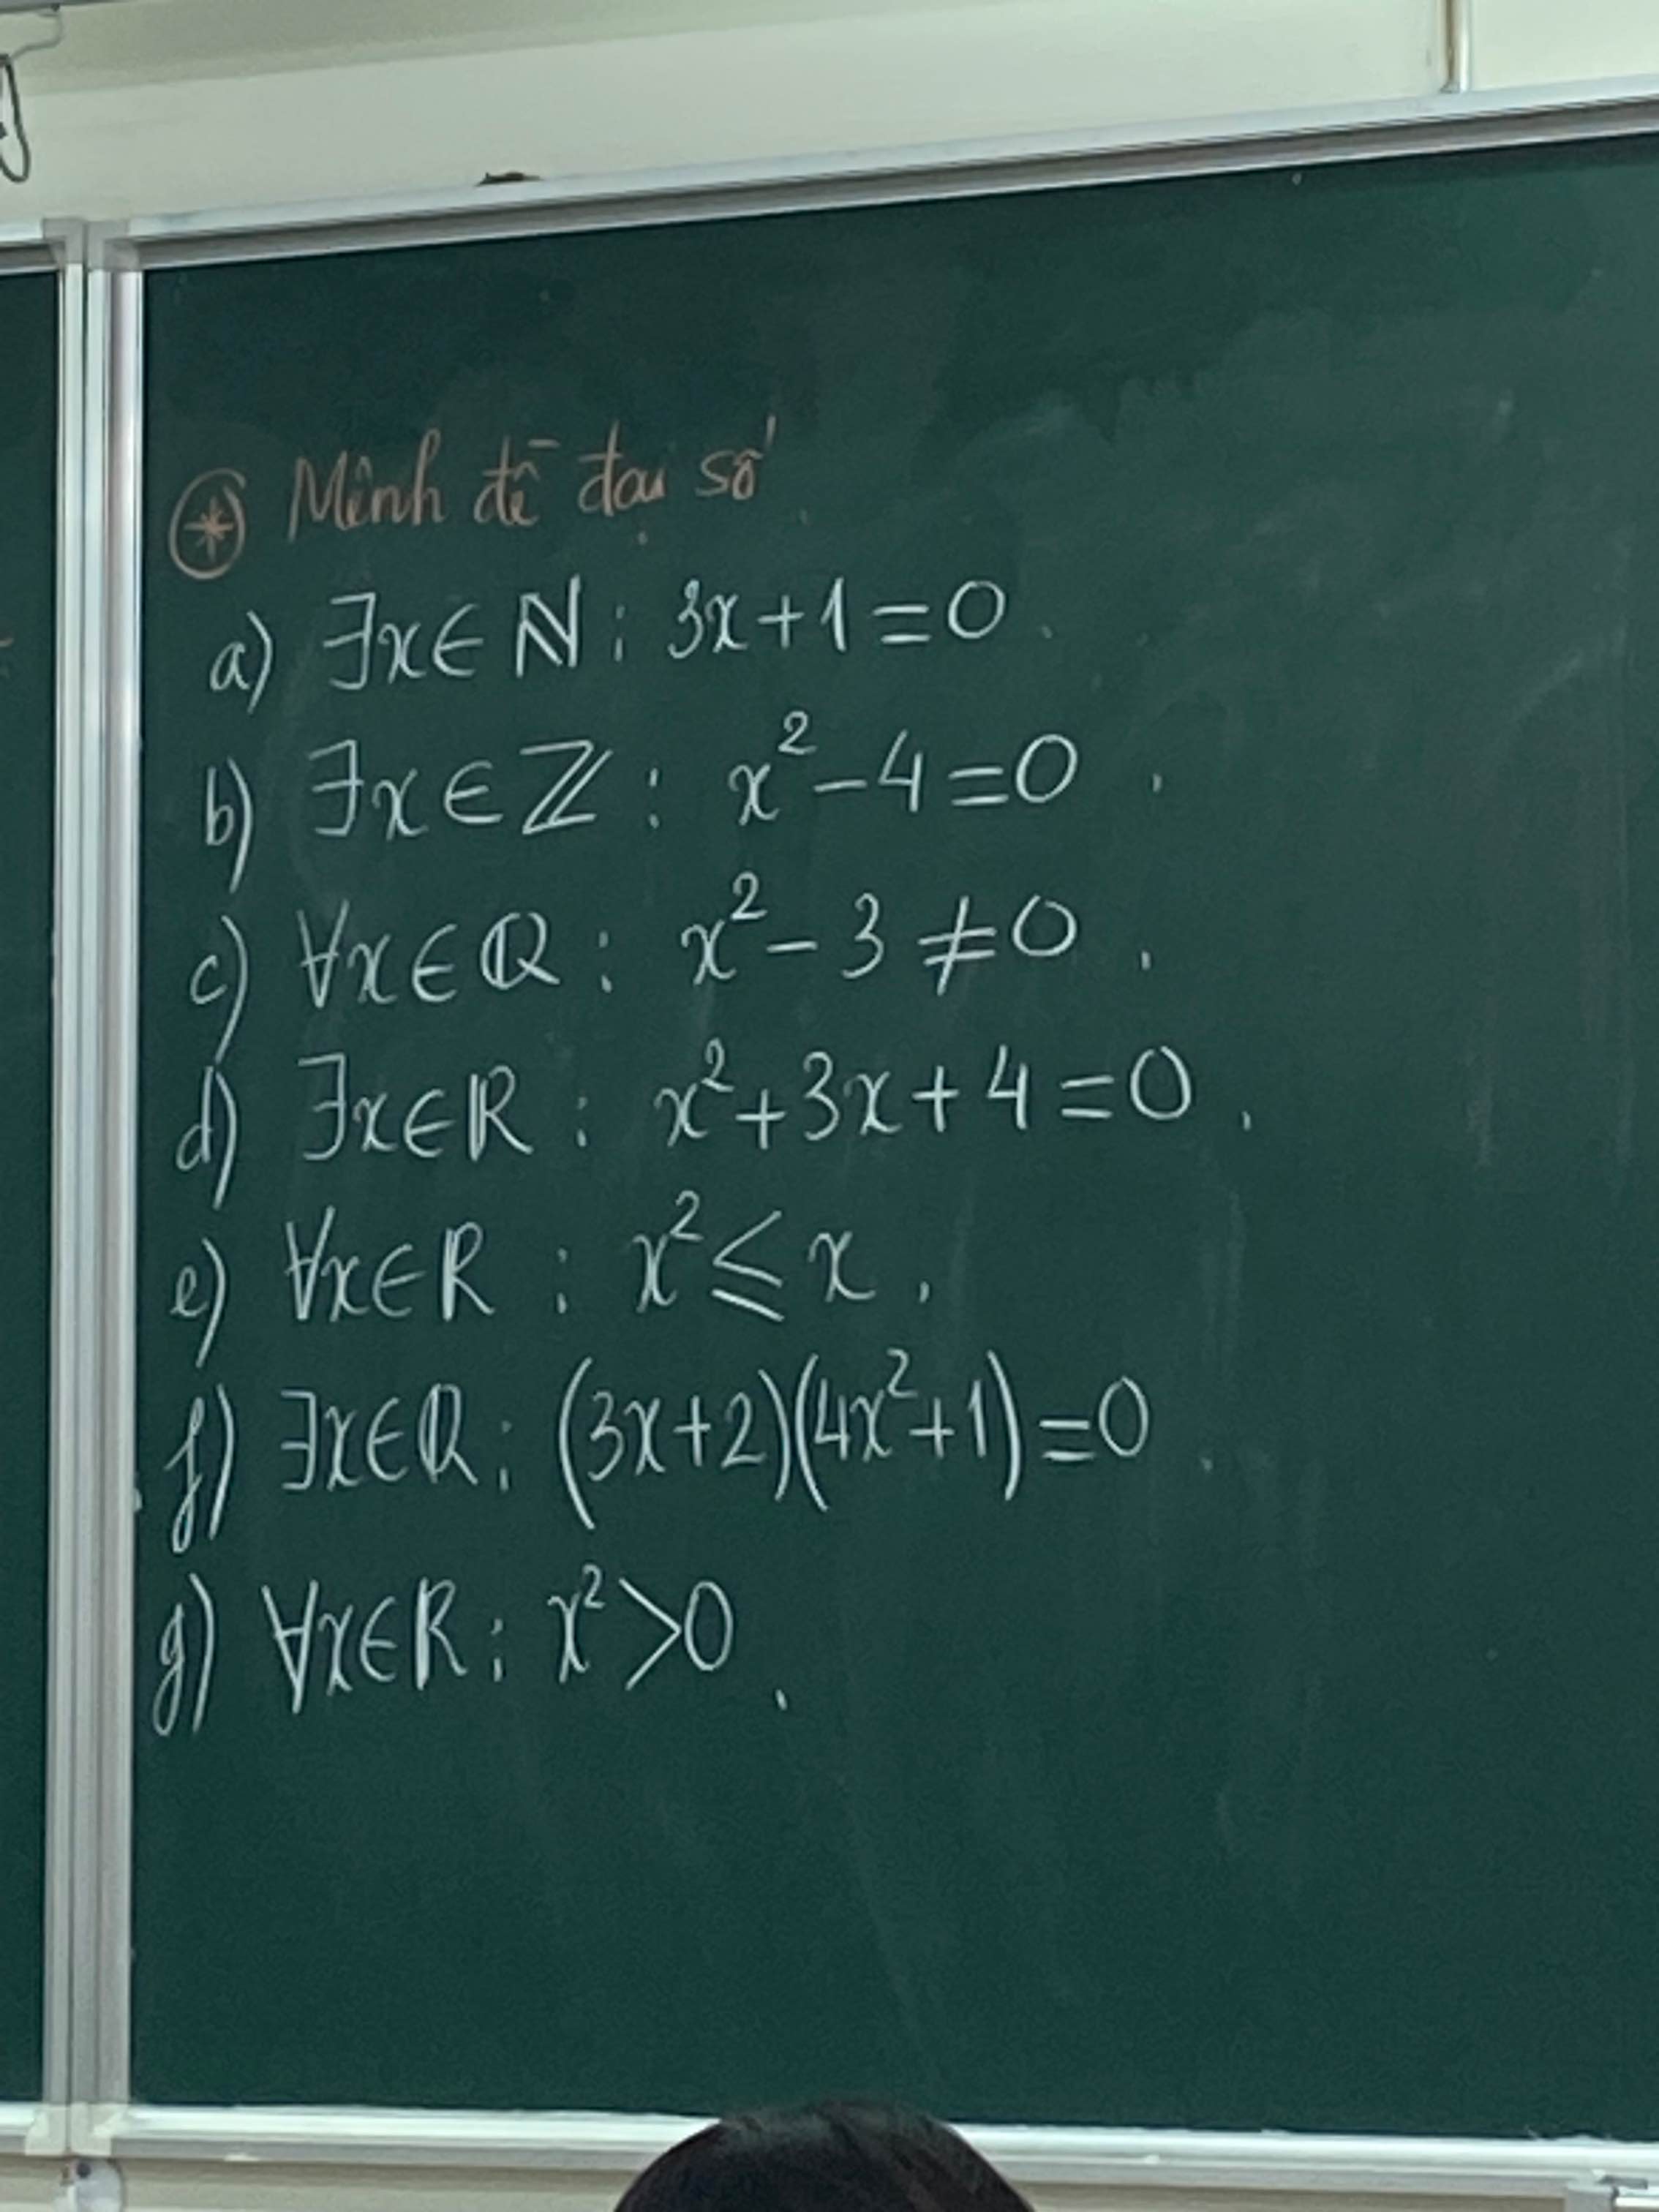 * Mệnh đề đại số
a) ∃x∈ℕ : 3x+1=0.
b) ∃x∈ℤ : x²-4=0.
c) ∀x∈ℚ : x²-3≠0.
d) ∃x∈ℝ : x²+3x+4=0.
e) ∀x∈ℝ : x²≤x.
f) ∃x∈ℚ : (3x+2)(4x²+1)=0.
g) ∀x∈ℝ : x²>0.